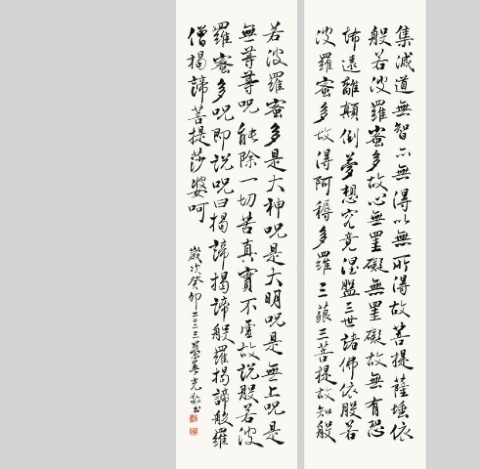 集滅道無智亦無得以無所得故菩提薩埵依
般若波羅蜜多故心無罣礙無罣礙故無有恐
怖遠離顛倒夢想究竟涅盤三世諸佛依般若
波羅蜜多故得阿耨多羅三藐三菩提故知般
若波羅蜜多是大神呪是大明呪是無上呪是
無等等呪能除一切苦真實不虛故說般若波
羅蜜多呪即說呪曰揭諦揭諦般羅揭諦般羅
僧揭諦菩提莎婆呵
歲次癸卯二〇二三